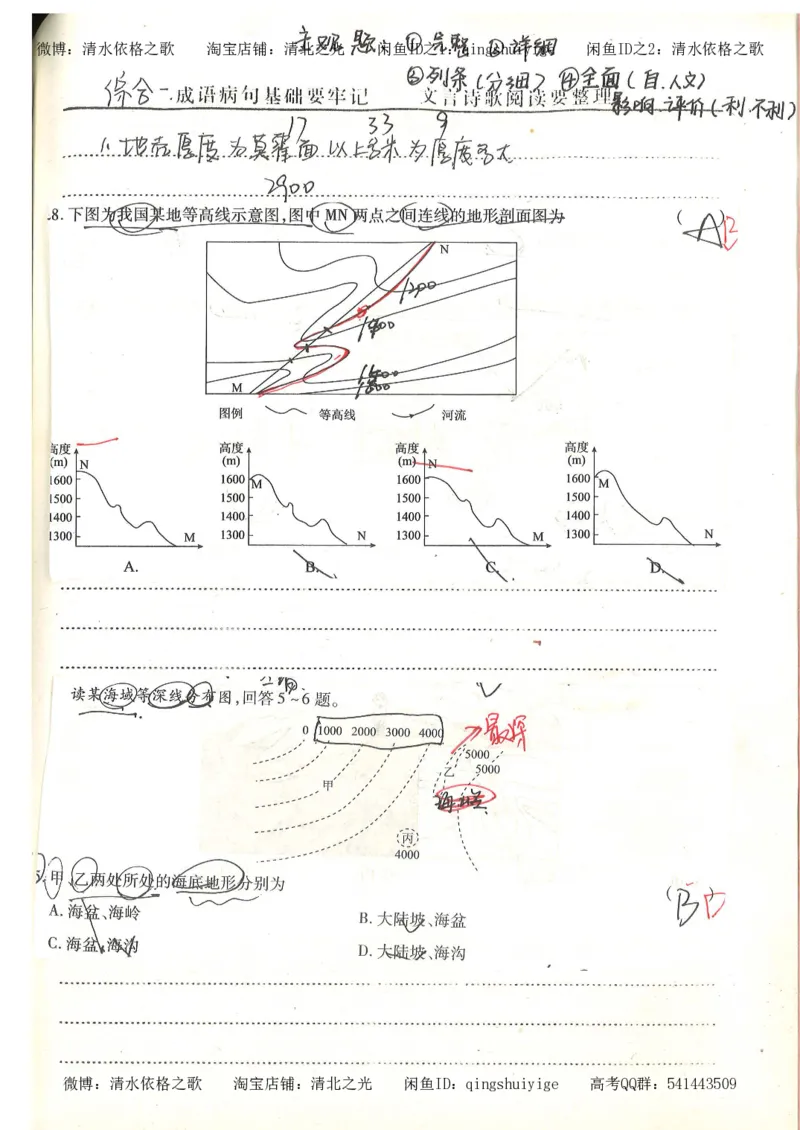 主观题 ①完整 ②详细
微博：清水依格之歌 淘宝店铺：清北之光 闲鱼ID之1：qingshuiyige 闲鱼ID之2：清水依格之歌
③列条（分细）④全面（自.人文）
综合一.成语病句基础要牢记 文言诗歌阅读要整理
影响.评价（利.不利）
17 33 9
1.地壳厚度为莫霍面以上
2900
8.下图为我国某地等高线示意图,图中 MN 两点之间连线的地形剖面图为 ( A )
B
N
1200
1400
1600
1800
M
图例 等高线 河流
高度 高度 高度 高度
(m) N (m) (m) N (m)
1600 1600 M 1600 1600 M
1500 1500 1500 1500
1400 1400 1400 1400
1300 M 1300 N 1300 M 1300 N
A. B. C. D.
读某海域等深线分布图,回答 5～6 题。
0 1000 2000 3000 4000
最深
5000
乙 5000
甲
海岭
丙
4000
5.甲、乙两处所处的海底地形分别为 (B) D
A.海盆、海岭 B.大陆坡、海盆
C.海盆、海沟 D.大陆坡、海沟
微博：清水依格之歌 淘宝店铺：清北之光 闲鱼ID：qingshuiyige 高考QQ群：541443509